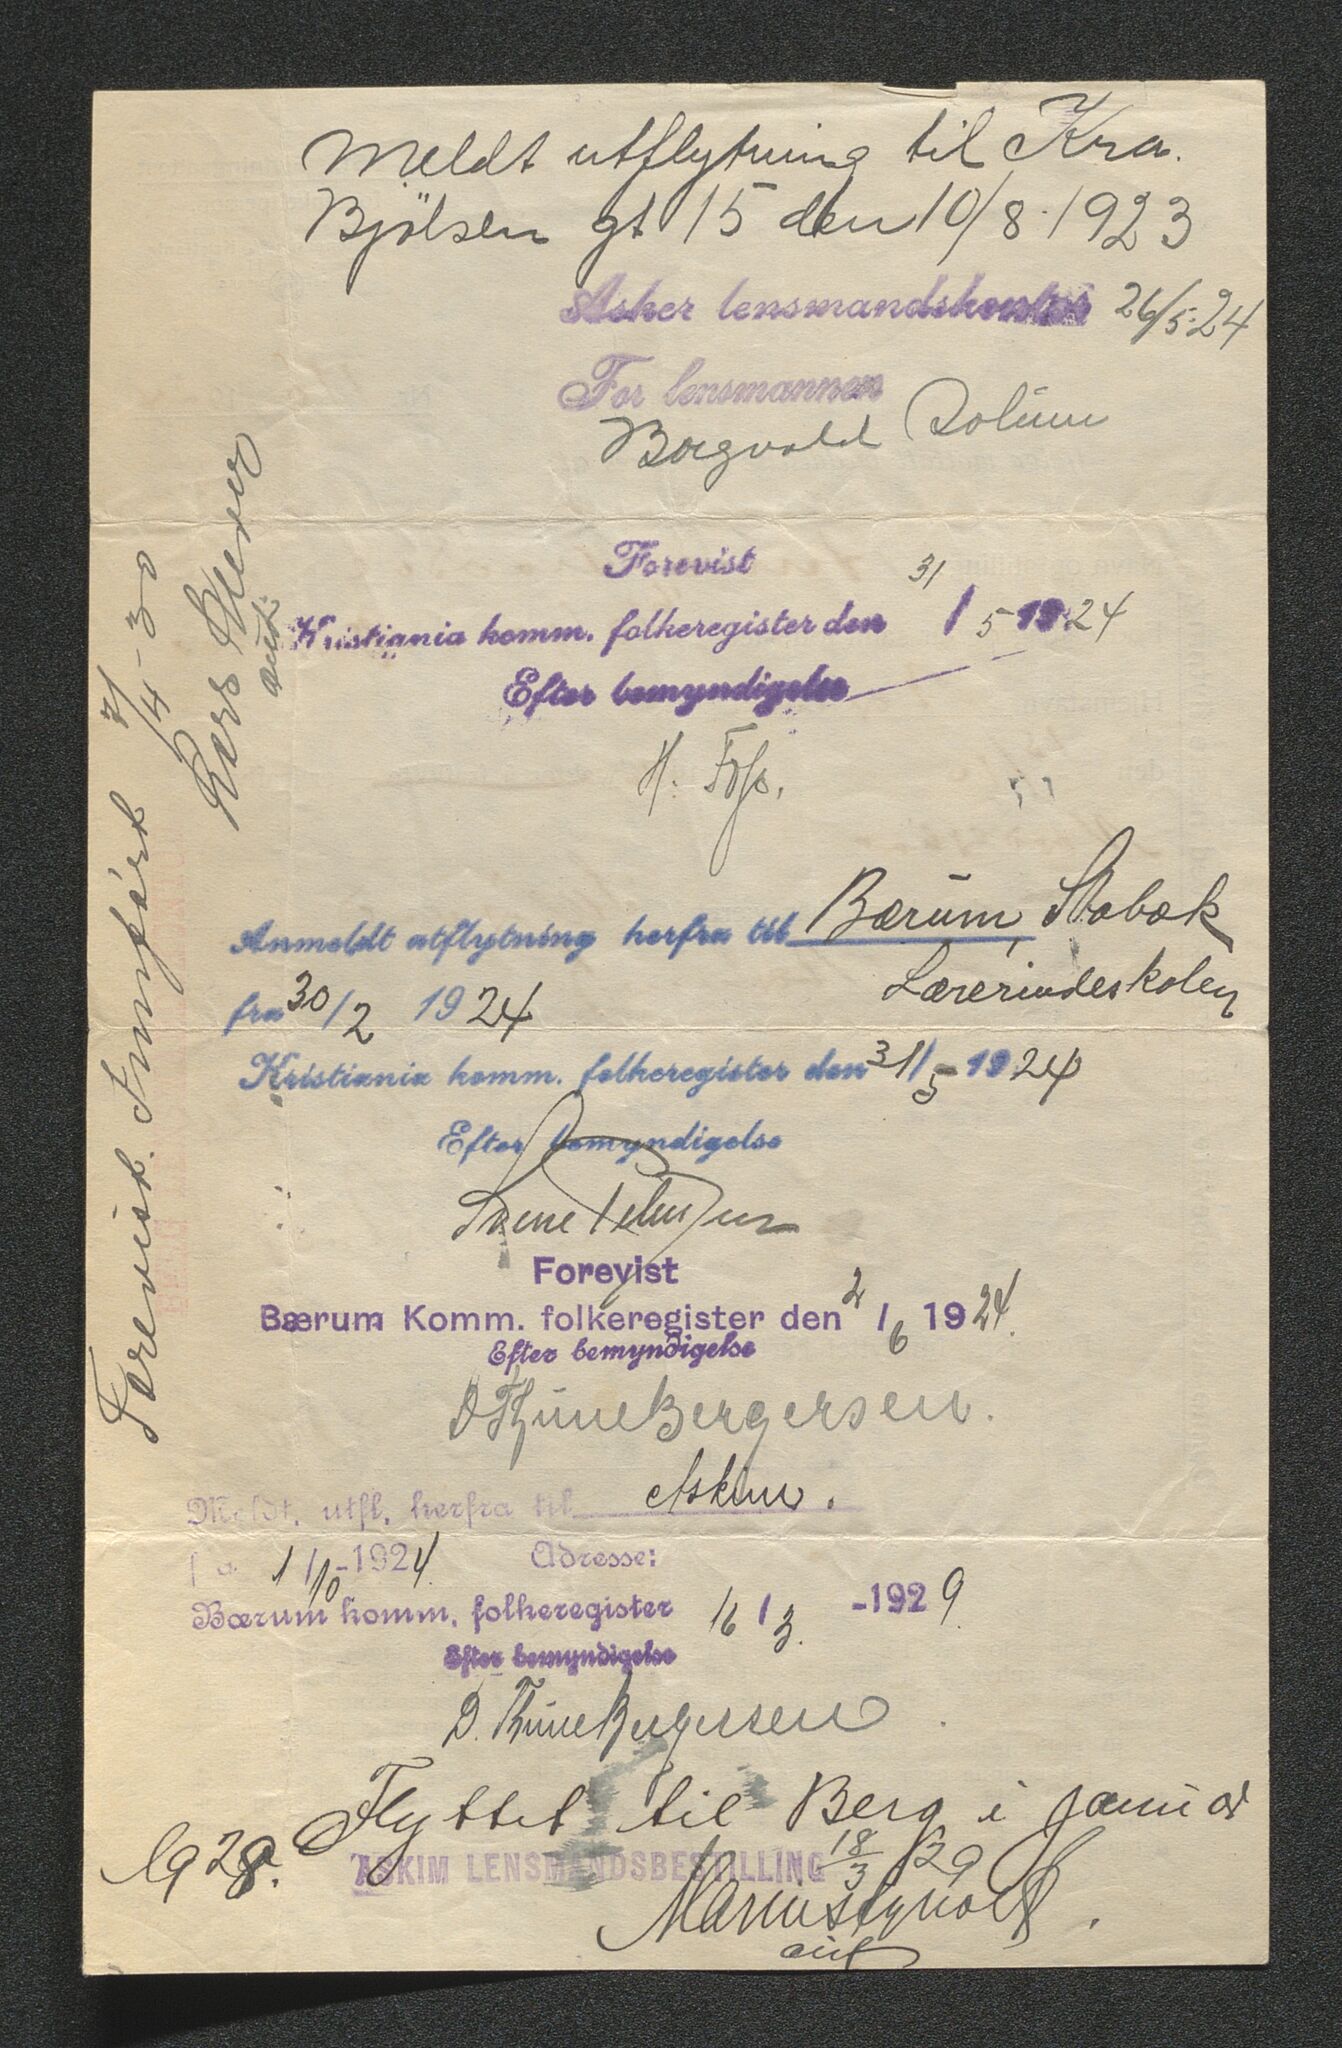 Meldt utflytning til Kra.
Bjølsen gt 15 den 10/8. 1923
Asker lensmandskontor 26/5. 24
For lensmannen
Borgvald Solum
Forevist
Kristiania komm. folkeregister den 31/5 1924
Efter bemyndigelse
H. Foss.
Anmeldt utflytning herfra til Bærum, Stabæk
Lærerindeskolen
fra 30/2 1924
Kristiania komm. folkeregister den 31/5 1924
Efter bemyndigelse
Forevist
Bærum Komm. folkeregister den 2/6 1924.
Efter bemyndigelse
D Thüne Bergersen.
Meldt. utfl. herfra til Askim.
fra 1/10-1924. Adresse:
Bærum komm. folkeregister 16/3. -1929.
Efter bemyndigelse
D. Thüne Bergersen
Flyttet til Berg i januar
1928.
ASKIM LENSMANDSBESTILLING 18/3 29
aut
Forevist. Innført 7/4-30
Lars
aut.